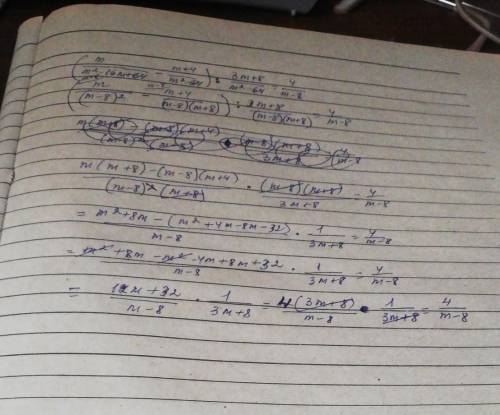 (m/(m²-16m+64) - (m+4)/(m²-64)) : (3m+8)/(m²-64) = 4/(m-8)
(m/(m-8)² - (m+4)/((m-8)(m+8))) : (3m+8)/((m-8)(m+8)) = 4/(m-8)
(m(m+8) - (m-8)(m+4))/((m-8)²(m-8)) · ((m-8)(m+8))/(3m+8) = 4/(m-8)
(m(m+8)-(m-8)(m+4))/((m-8)²(m+8)) · ((m-8)(m+8))/(3m+8) = 4/(m-8)
= (m²+8m-(m²+4m-8m-32))/(m-8) · 1/(3m+8) = 4/(m-8)
= (m²+8m-m²-4m+8m+32)/(m-8) · 1/(3m+8) = 4/(m-8)
= (12m+32)/(m-8) · 1/(3m+8) = 4(3m+8)/(m-8) · 1/(3m+8) = 4/(m-8)